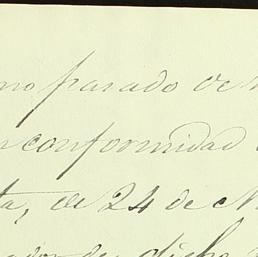 pasado de
conformidad
ta, de 24 de N
dicho